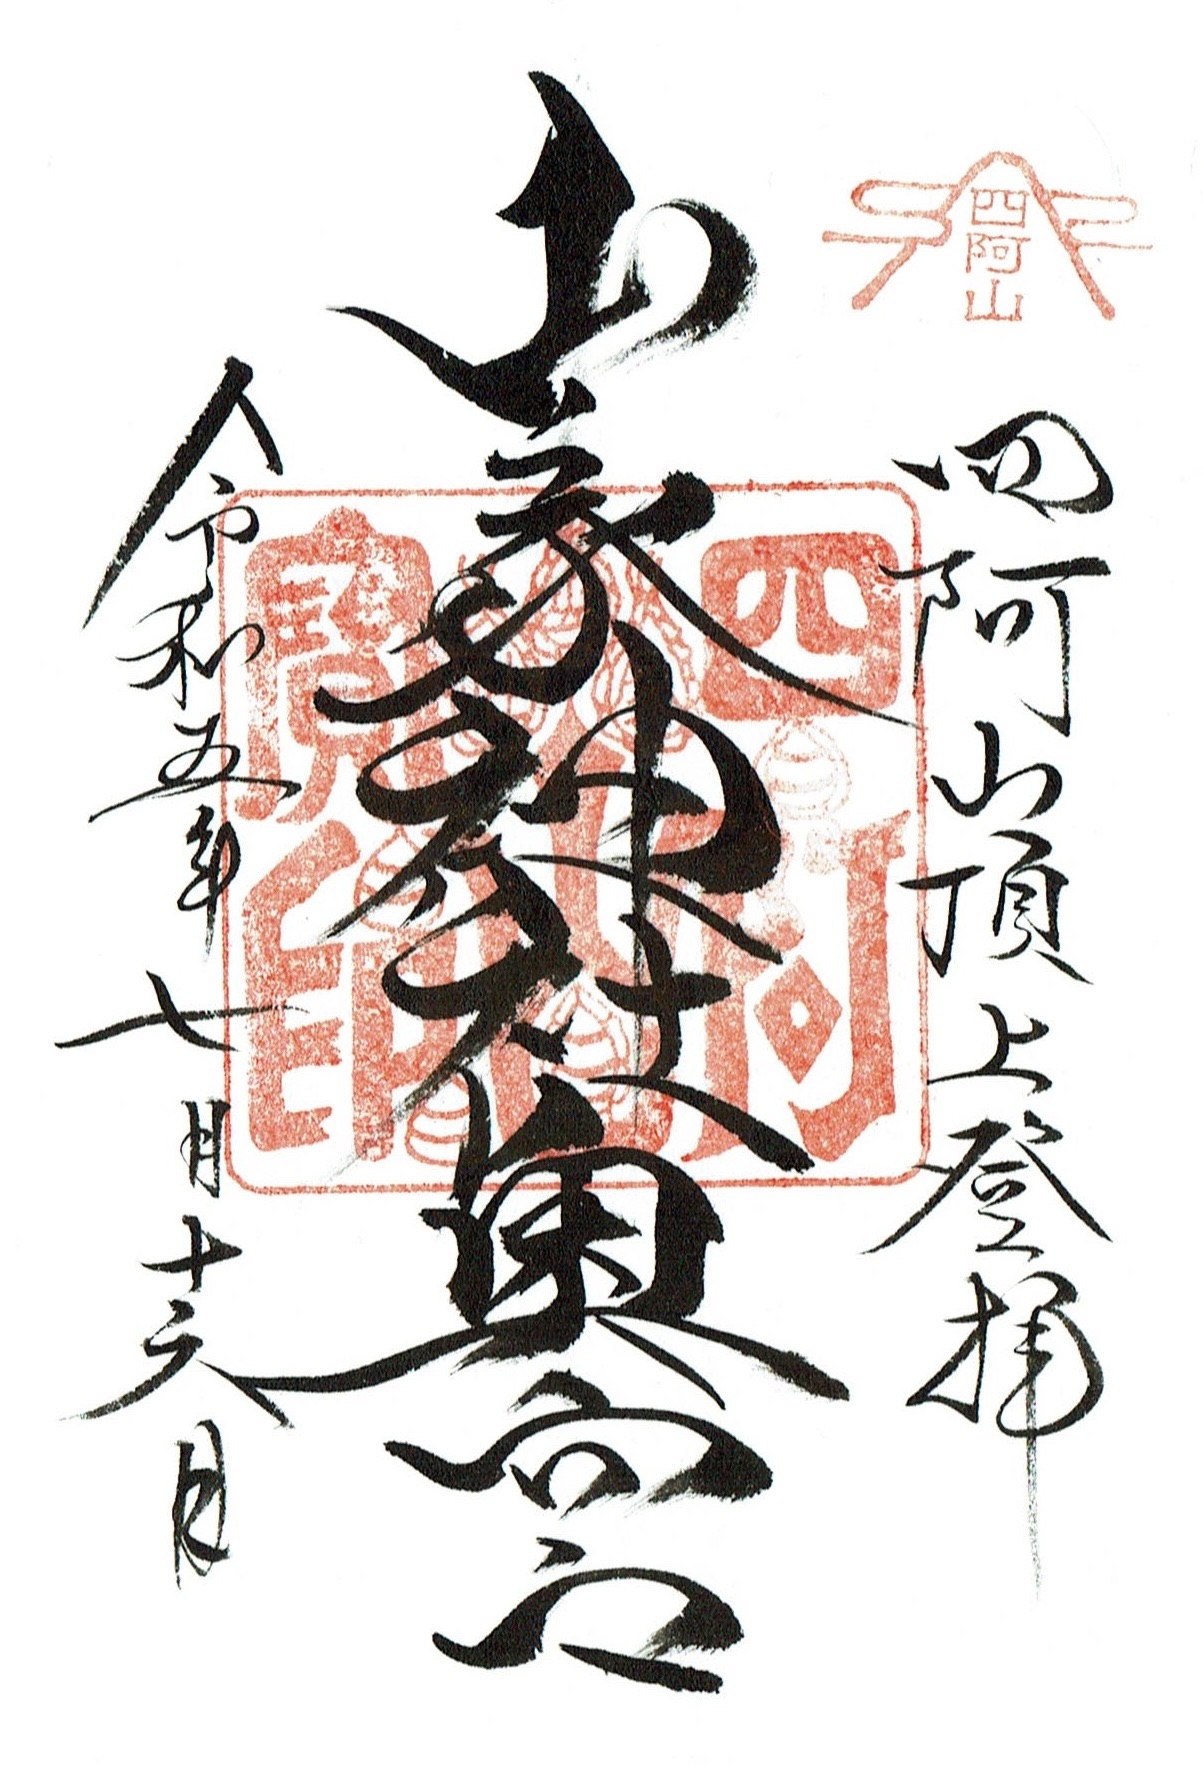 四阿山
四阿山頂上登拝
山家神社奥宮
四阿山寶印
令和五年七月十六日